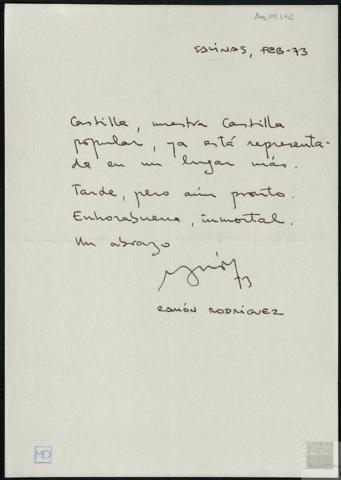 SALINAS, FEB-73
Castilla, nuestra Castilla
popular, ya está representa-
da en un lugar más.
Tarde, pero aún pronto.
Enhorabuena, inmortal.
Un abrazo
73
RAMÓN RODRÍGUEZ
MD